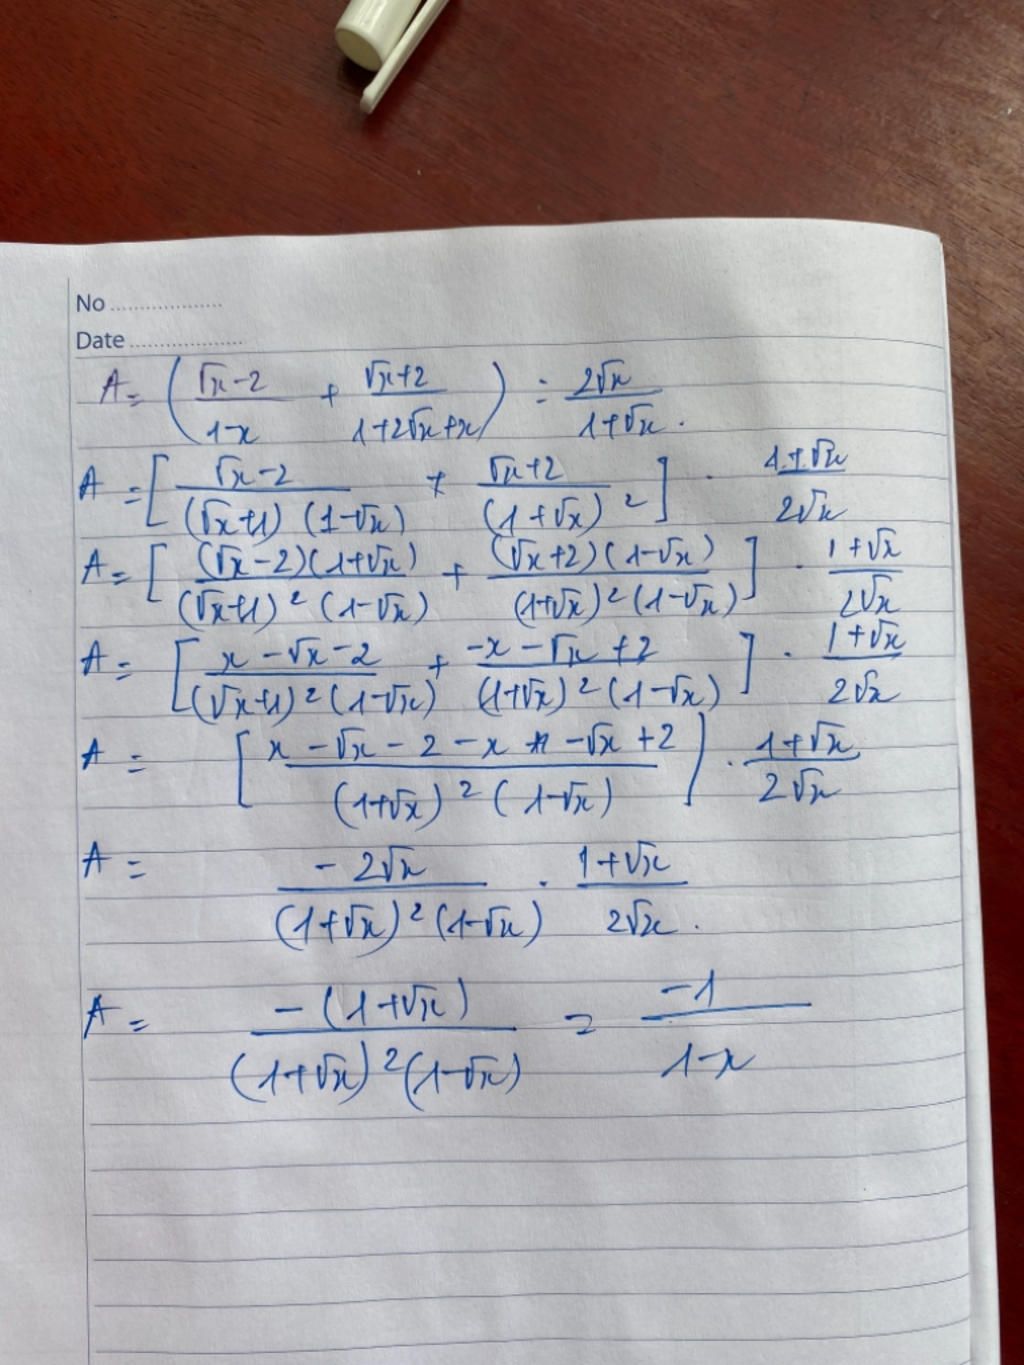 No ..................
Date ..................
A = ( (√x-2)/(1-x) + (√x+2)/(1+2√x+x) ) : 2√x/(1+√x).
A = [ (√x-2)/((√x+1)(1-√x)) + (√x+2)/(1+√x)² ] . (1+√x)/(2√x)
A = [ (√x-2)(1+√x)/((√x+1)²(1-√x)) + (√x+2)(1-√x)/((1+√x)²(1-√x)) ] . (1+√x)/(2√x)
A = [ (x-√x-2)/((√x+1)²(1-√x)) + (-x-√x+2)/((1+√x)²(1-√x)) ] . (1+√x)/(2√x)
A = [ (x-√x-2-x-√x+2)/((1+√x)²(1-√x)) ] . (1+√x)/(2√x)
A = -2√x/((1+√x)²(1-√x)) . (1+√x)/(2√x).
A = -(1+√x)/((1+√x)²(1-√x)) = -1/(1-x)